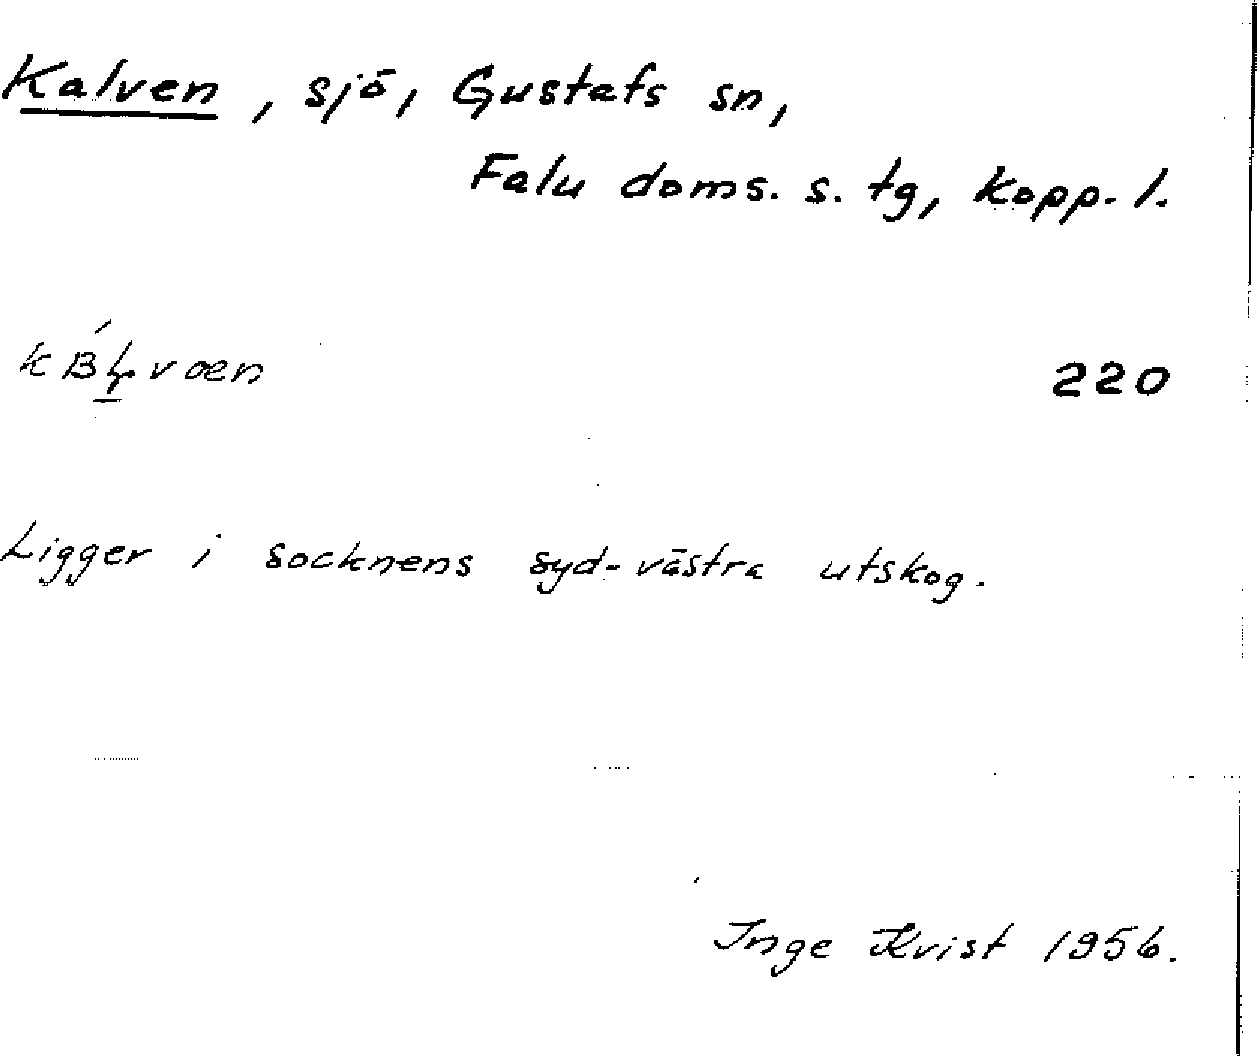 Kalven, sjö, Gustafs sn,
Falu doms. s. tg, Kopp. l.
220
Ligger i socknens syd-västra utskog.
Inge Kvist 1956.